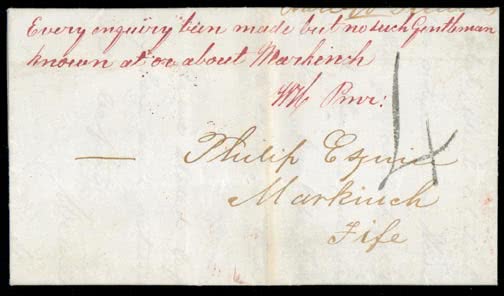 Every enquiry been made but no such Gentleman
known at or about Markinch
WH Pmr:
4
— Philip Esquire
Markinch
Fife